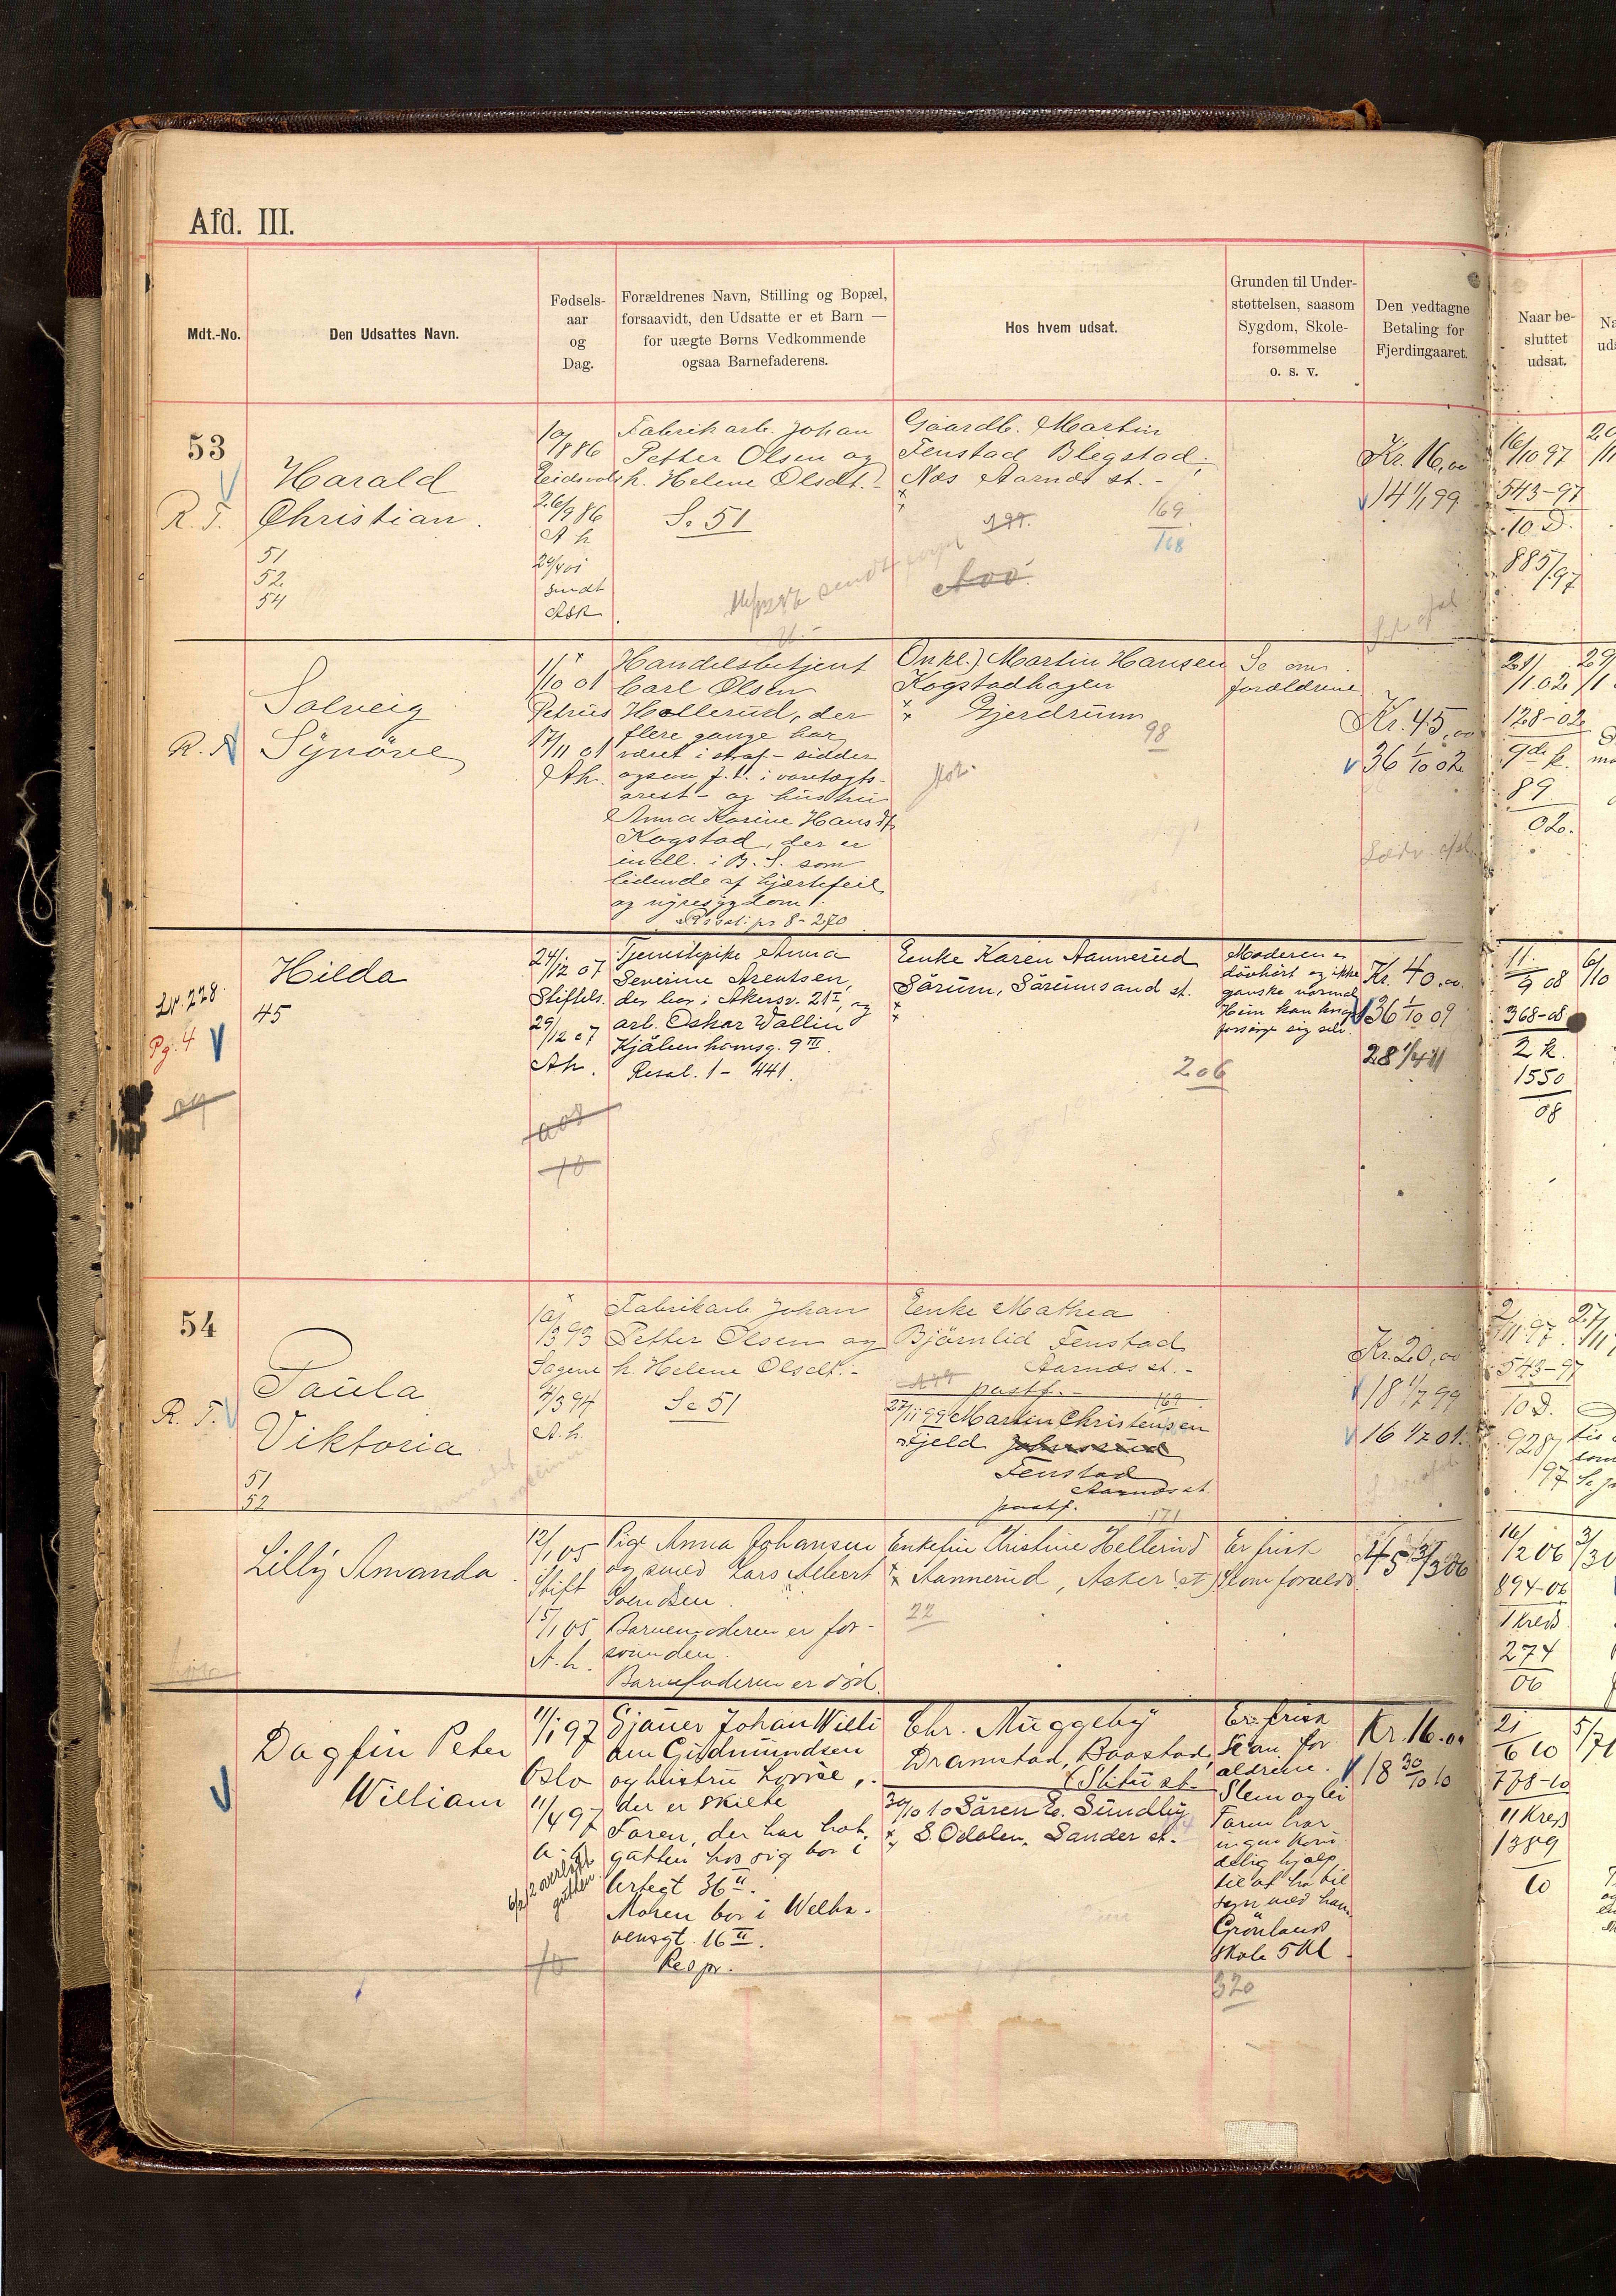 Afd. III.
Mdt.-No.
Den Udsattes Navn.
Fødsels-
aar
og
Dag.
Forældrenes Navn, Stilling og Bopæl,
forsaavidt, den Udsatte er et Barn —
for uægte Børns Vedkommende
ogsaa Barnefaderens.
Hos hvem udsat.
Grunden til Under-
støttelsen, saasom
Sygdom, Skole-
forsømmelse
o. s. v.
Den vedtagne
Betaling for
Fjerdingaaret.
Naar be-
sluttet
udsat.
53
R. T.
Harald
Christian.
51
52
54
10/8 86
Eidsvold
26/9 86
A h
Fabrikarb. Johan
Petter Olsen og
h. Helene Olsdt.-
Se 51
Gaardb. Martin
Fenstad Blegstad,
Næs Aarnæs st. -
199.
169
168
Kr. 16,00
14 1/1 99
16/10 97
543-97
10 D.
885/97
Solveig
Synöve
1/10 01
Petrus
17/11 01
Ah.
Handelsbetjent
Carl Olsen
Hollerud, der
flere gange har
været i straf - sidder
ogsaa f. t. i varetægts-
arest - og hustru
Anna Karine Hansdt
Kogstad, der er
indl. i B. S. som
lidende af hjertefeil
og nyresygdom.
pr 8-270
Onkel) Martin Hansen
Kogstadhagen
Gjerdrum
98
Se om
forældrene
Kr. 45,00
36 1/10 02
21/1.02
128-02
9de k.
89
02.
Lp. 228.
Pg. 4
09
Hilda
45
24/12 07
Stiftels.
29/12 07
Ah.
Tjenestepike Anna
Severine Arentsen,
der bor i Akersv. 21 I, og
arb. Oskar Wallin
Kjöbenhavnsg. 9 III.
Resol. 1 - 441.
Enke Karen Aannerud
Sörum, Sörumsand st.
206
Moderen er
døvhørt og ikke
ganske normal
Hun kan knapt
forsörge sig selv.
Kr. 40,00.
36 1/10 09
28 1/4 11
11/9 08
368-08
2 k.
1550
08
54
R. T.
Paula
Viktoria
51
52
13 93
Sagene
4/3 94
A. h.
Fabrikarb Johan
Petter Olsen og
h. Helene Olsdt.-
Se 51
Enke Mathea
Björnlid Fenstad
Aarnæs st.-
postf.-
169
27/11 99 Martin Christensen
Fjeld
Fenstad
Aarnæs st.
postf.
171
Kr. 20,00
18 1/7 99
16 1/7 01.
2/11 97
543-97
10 D.
928/97
Lilly Amanda
12/1 05
Stift
15/1 05
A. h.
Pige Anna Johansen
og smed Lars Albert
Svendsen.
Barnemoderen er for-
svunden.
Barnefaderen er död.
Enkefru Kristine Hellerud
Aannerud, Asker st)
22
Er frisk
Se om foræld.
45
16/2 06
894-06
1 Kreds
274
06
Dagfin Peter
William
11/1 97
Oslo
11/4 97
a. h.
Sjauer Johan Willi
am Gudmundsen
og hustru Lovise,
der er skilte
Faren, der har hat
gutten hos sig bor i
Urtegt 36 II.
Moren bor i Welha-
vensgt. 16 II.
Res pr.
Chr. Muggeby
Dramstad, Baastad
(Slitu st.
30/10 10 Sören E. Sundby
S Odalen, Sander st.
Er frisk
Se om for
ældrene.
Slem og lei
Faren har
ingen kvin
delig hjælp
til at ha til
syn med ham
Grönlands
skole 5 kl.
320
Kr. 16.00
18 30/10 10
21/6 10
778-10
11 Kreds
1389
10